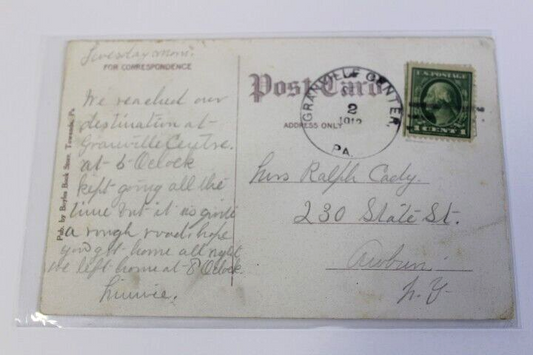 Tuesday morn.
FOR CORRESPONDENCE
We reached our
destination at
Granville Centre.
at 6 Oclock
kept going all the
time but it is quite
a rough road. hope
you got home all right
we left home at 8 Oclock
Pub. by Boyles Book Store, Towanda, Pa
Post Card
ADDRESS ONLY
GRANVILLE CENTER,
2
PA.
U.S. POSTAGE
1 CENT 1
Mrs Ralph Cady.
230 State St.
Auburn
N. Y.